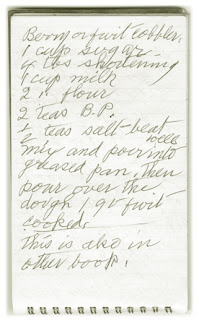 Berry or fruit cobbler.
1 cup sugar
4 tbs shortening
1 cup milk
2 " flour
2 teas B.P.
½ teas salt - beat
well
mix and pour into
greased pan. Then
pour over the
dough 1 qt fruit
cooked.
This is also in
other book.